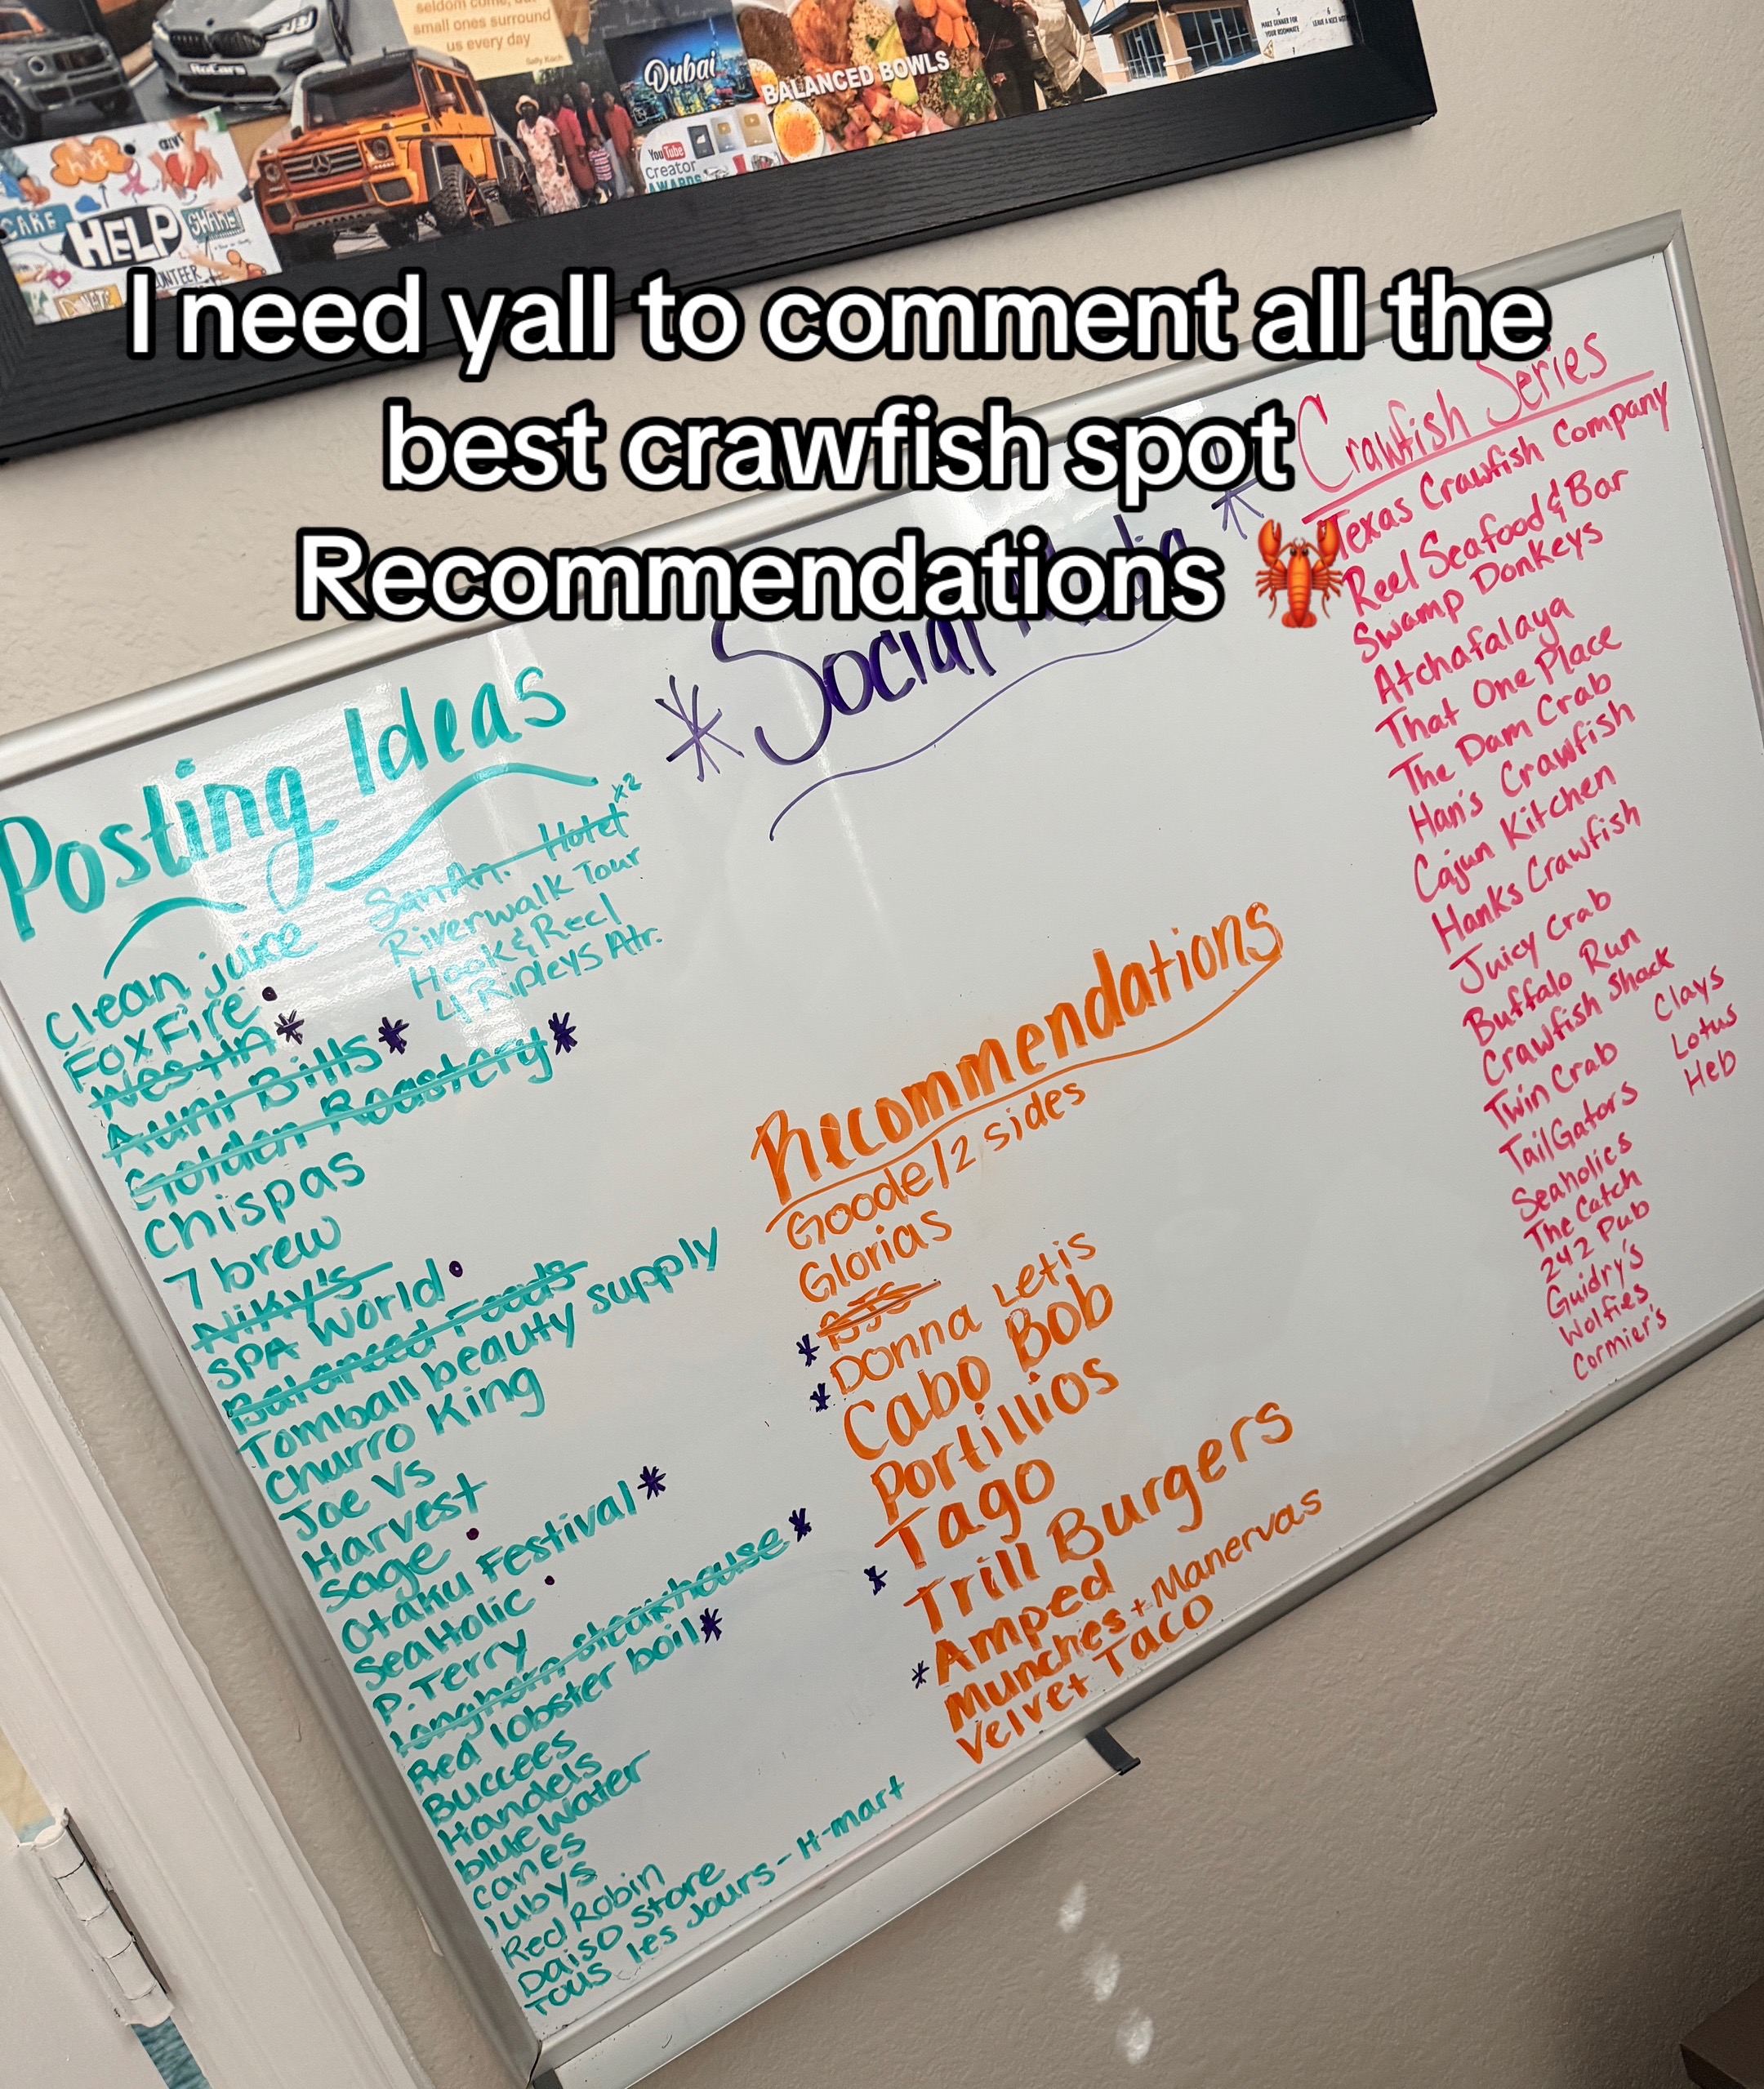 seldom come, but
small ones surround
us every day
Sally Koch
RoCars
Dubai
BALANCED BOWLS
YouTube
Creator
AWARDS
MAKE DINNER FOR
YOUR ROOMMATE
CARE
HELP
SHARE
DONATE
I need yall to comment all the
best crawfish spot
Recommendations 🦞
* Social Media *
Posting Ideas
Clean juice
FoxFire
Westin *
Aunt Bills *
Golden Roastery *
Chispas
7 brew
Niky's
SPA World
Balanced Foods
Tomball beauty supply
Churro King
Joe Vs
Harvest
Sage
Otaku Festival *
Seaholic
P. Terry
longhorn steakhouse *
Red lobster boil *
Buccees
Handels
blue water
canes
lubys
Red Robin
Daiso Store
Tous les Jours - H-mart
San An. Hotel x2
Riverwalk Tour
Hook & Reel
4 Ripleys Atr.
Recommendations
Goode/2 sides
Glorias
BJS
* Donna Letis
* Cabo Bob
Portillios
Tago
* Trill Burgers
* Amped
Munches + Manervas
Velvet Taco
Crawfish Series
Texas Crawfish Company
Reel Seafood & Bar
Swamp Donkeys
Atchafalaya
That One Place
The Dam Crab
Han's Crawfish
Cajun Kitchen
Hanks Crawfish
Juicy Crab
Buffalo Run
Crawfish Shack
Twin Crab
TailGators
Seaholics
The Catch
242 Pub
Guidry's
Wolfies
Cormier's
Clays
Lotus
Heb